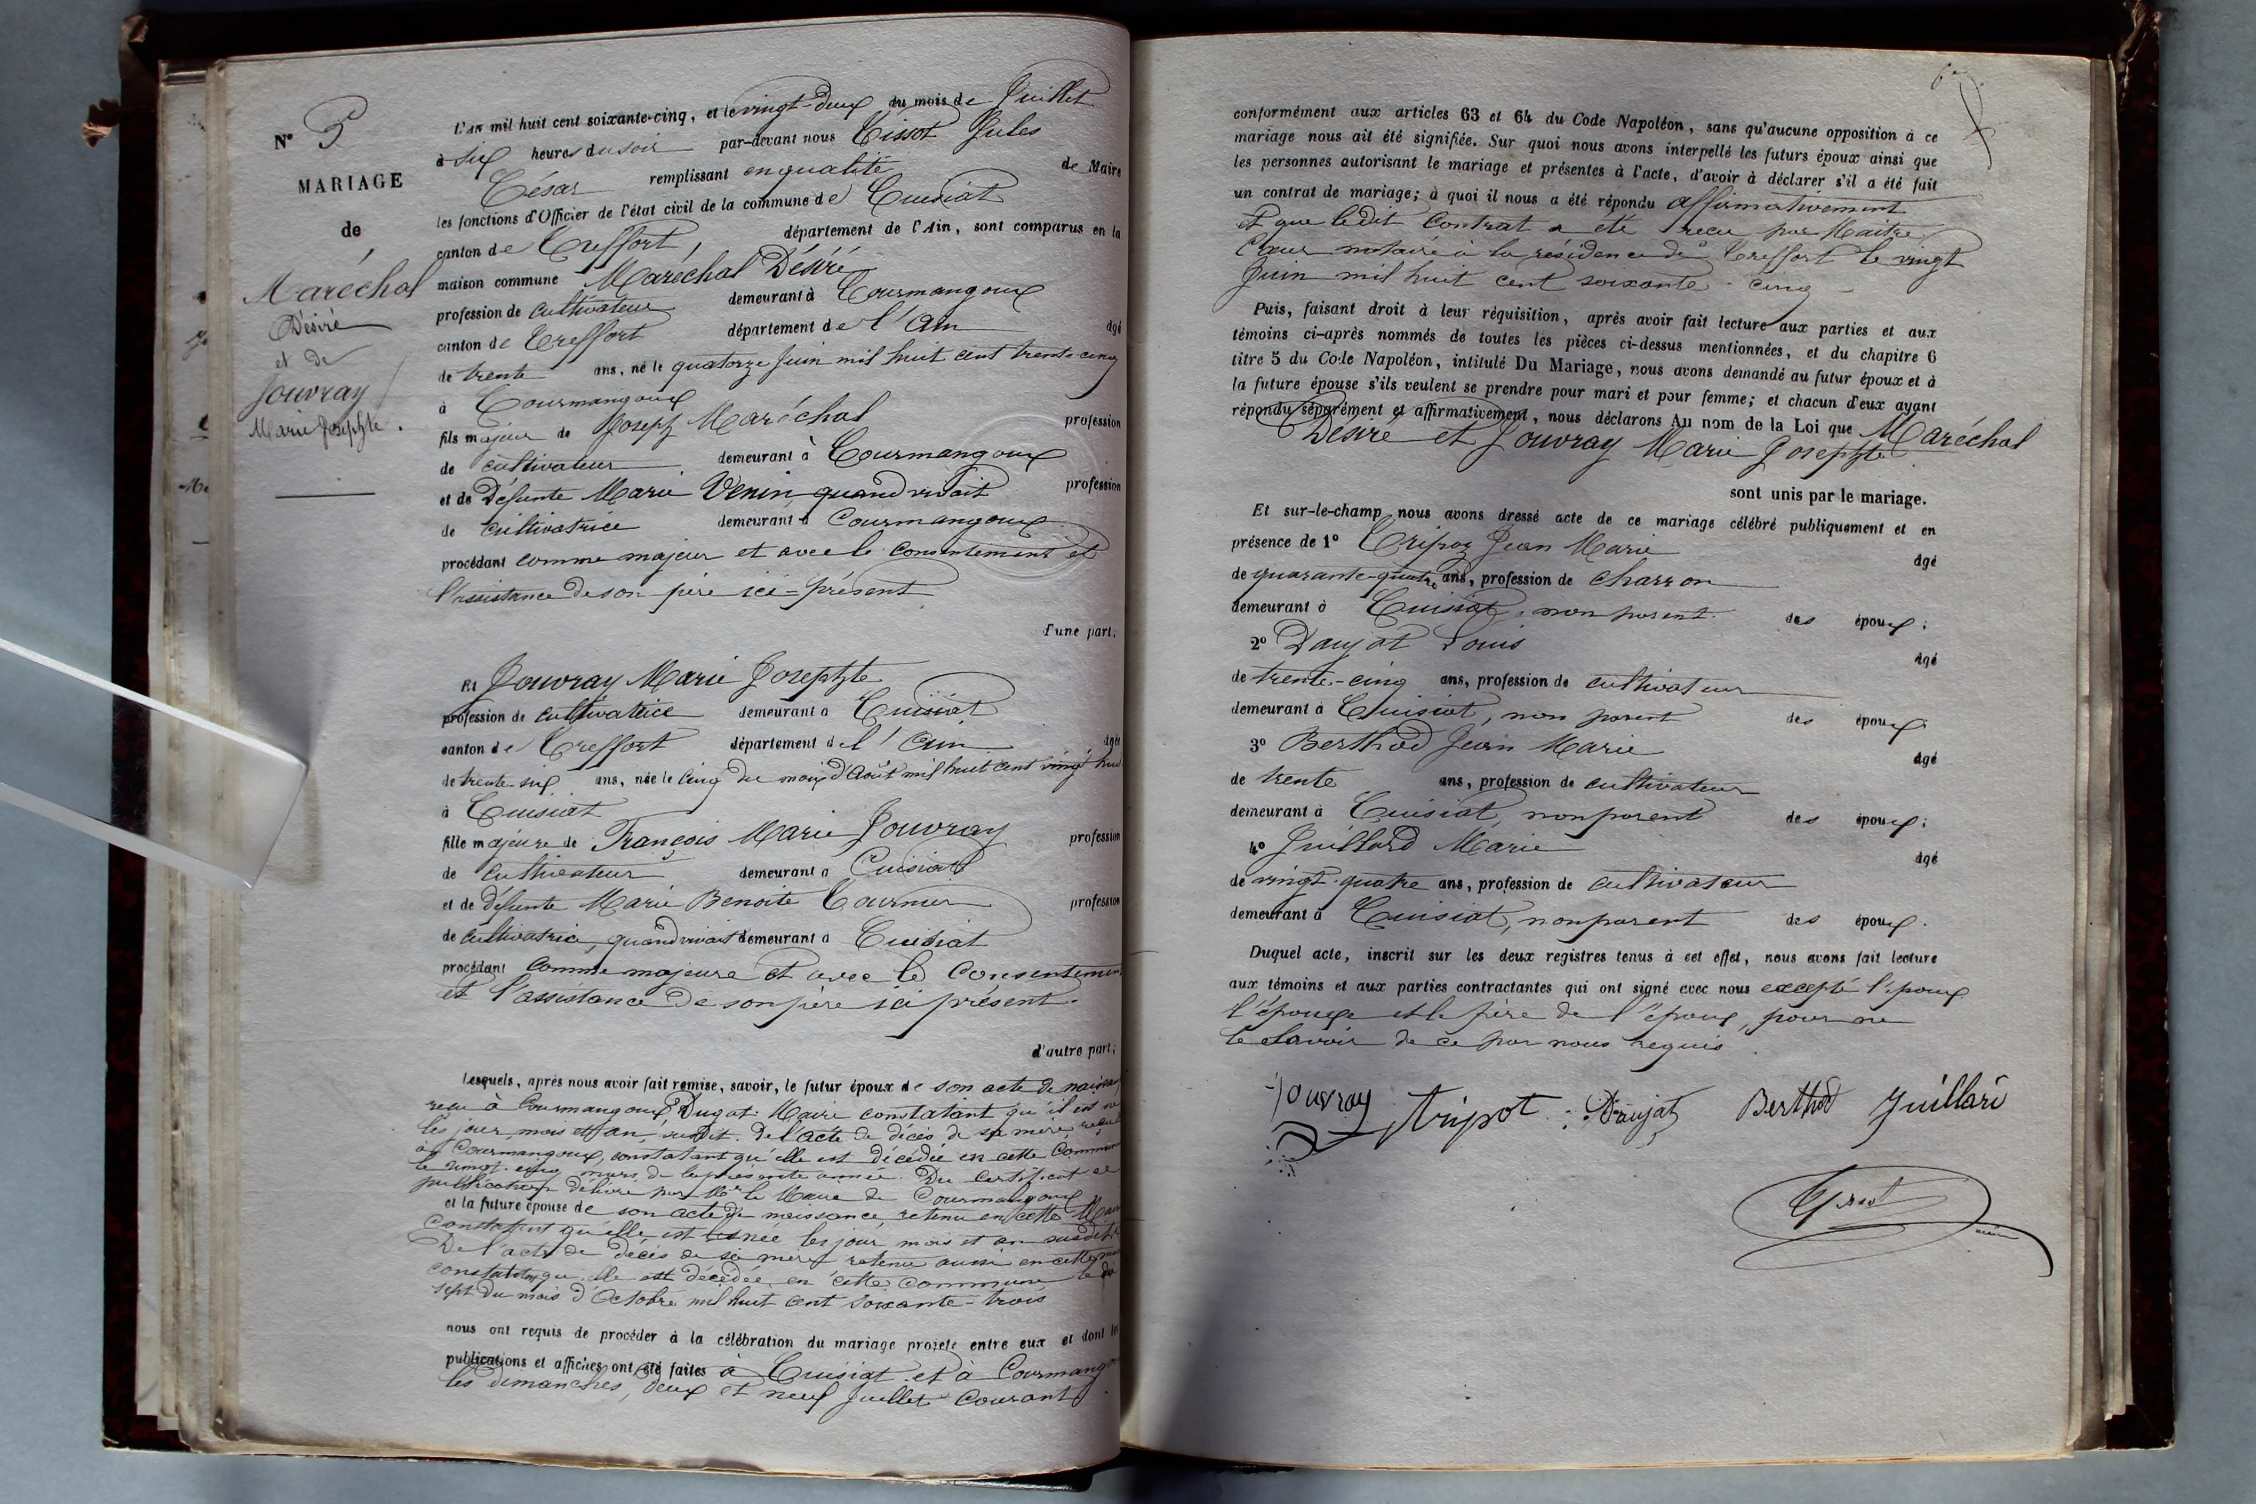 N° 5
MARIAGE
de
Maréchal
Désiré
et de
Jouvray
Marie Josephte.
L'an mil huit cent soixante-cinq, et le vingt-deux du mois de Juillet
à six heures du soir par-devant nous Tissot Jules
César remplissant en qualité de Maire
les fonctions d'Officier de l'état civil de la commune de Cuisiat
canton de Treffort, département de l'Ain, sont comparus en la
maison commune Maréchal Désiré
profession de cultivateur demeurant à Courmangoux
canton de Treffort département de l'Ain âgé
de trente ans, né le quatorze Juin mil huit cent trente cinq
à Courmangoux
fils majeur de Joseph Maréchal profession
de cultivateur demeurant à Courmangoux
et de Défunte Marie Venin quand vivait profession
de cultivatrice demeurant à Courmangoux
procédant comme majeur et avec le consentement et
l'assistance de son père ici-présent
d'une part;
Et Jouvray Marie Josephte
profession de cultivatrice demeurant à Cuisiat
canton de Treffort département de l'Ain âgée
de trente-six ans, née le cinq du mois d'Août mil huit cent vingt huit
à Cuisiat
fille majeure de François Marie Jouvray profession
de cultivateur demeurant à Cuisiat
et de défunte Marie Benoite Tournier profession
de cultivatrice, quand vivait demeurant à Cuisiat
procédant comme majeure et avec le consentement
et l'assistance de son père ici présent.
d'autre part;
Lesquels, après nous avoir fait remise, savoir, le futur époux de son acte de naissance
reçu à Courmangoux Dugat Maire constatant qu'il est né
les jour, mois et an, susdit. De l'acte de décès de sa mère reçu
à Courmangoux, constatant qu'elle est décédée en cette Commune
le vingt-cinq mars de la présente année. Du certificat de
publication délivré par Mr le Maire de Courmangoux
et la future épouse de son acte de naissance, retenu en cette Mairie
constatant qu'elle est née les jour, mois et an susdits.
De l'acte de décès de sa mère retenu aussi en cette
constatant qu'elle est décédée en cette commune le dix
sept du mois d'Octobre mil huit cent soixante-trois
nous ont requis de procéder à la célébration du mariage projeté entre eux et dont les
publications et affiches ont été faites à Cuisiat et à Courmangoux
les dimanches, deux et neuf Juillet courant.
conformément aux articles 63 et 64 du Code Napoléon, sans qu'aucune opposition à ce
mariage nous ait été signifiée. Sur quoi nous avons interpellé les futurs époux ainsi que
les personnes autorisant le mariage et présentes à l'acte, d'avoir à déclarer s'il a été fait
un contrat de mariage; à quoi il nous a été répondu affirmativement
et que ledit contrat a été reçu par Maître
notaire à la résidence de Treffort le vingt
Juin mil huit cent soixante-cinq
Puis, faisant droit à leur réquisition, après avoir fait lecture aux parties et aux
témoins ci-après nommés de toutes les pièces ci-dessus mentionnées, et du chapitre 6
titre 5 du Code Napoléon, intitulé Du Mariage, nous avons demandé au futur époux et à
la future épouse s'ils veulent se prendre pour mari et pour femme; et chacun d'eux ayant
répondu séparément et affirmativement, nous déclarons Au nom de la Loi que Maréchal
Désiré et Jouvray Marie Josephte
sont unis par le mariage.
Et sur-le-champ nous avons dressé acte de ce mariage célébré publiquement et en
présence de 1° Tripoz Jean Marie âgé
de quarante-quatre ans, profession de charron
demeurant à Cuisiat, non parent des époux;
2° Daujat Louis âgé
de trente-cinq ans, profession de cultivateur
demeurant à Cuisiat, non parent des époux;
3° Berthod Jean Marie âgé
de trente ans, profession de cultivateur
demeurant à Cuisiat, non parent des époux;
4° Juillard Marie âgé
de vingt-quatre ans, profession de cultivateur
demeurant à Cuisiat, non parent des époux.
Duquel acte, inscrit sur les deux registres tenus à cet effet, nous avons fait lecture
aux témoins et aux parties contractantes qui ont signé avec nous excepté l'époux
l'épouse et le père de l'époux, pour ne
le savoir de ce par nous requis.
Jouvray tripot Daujat Berthod Juillard
Tissot